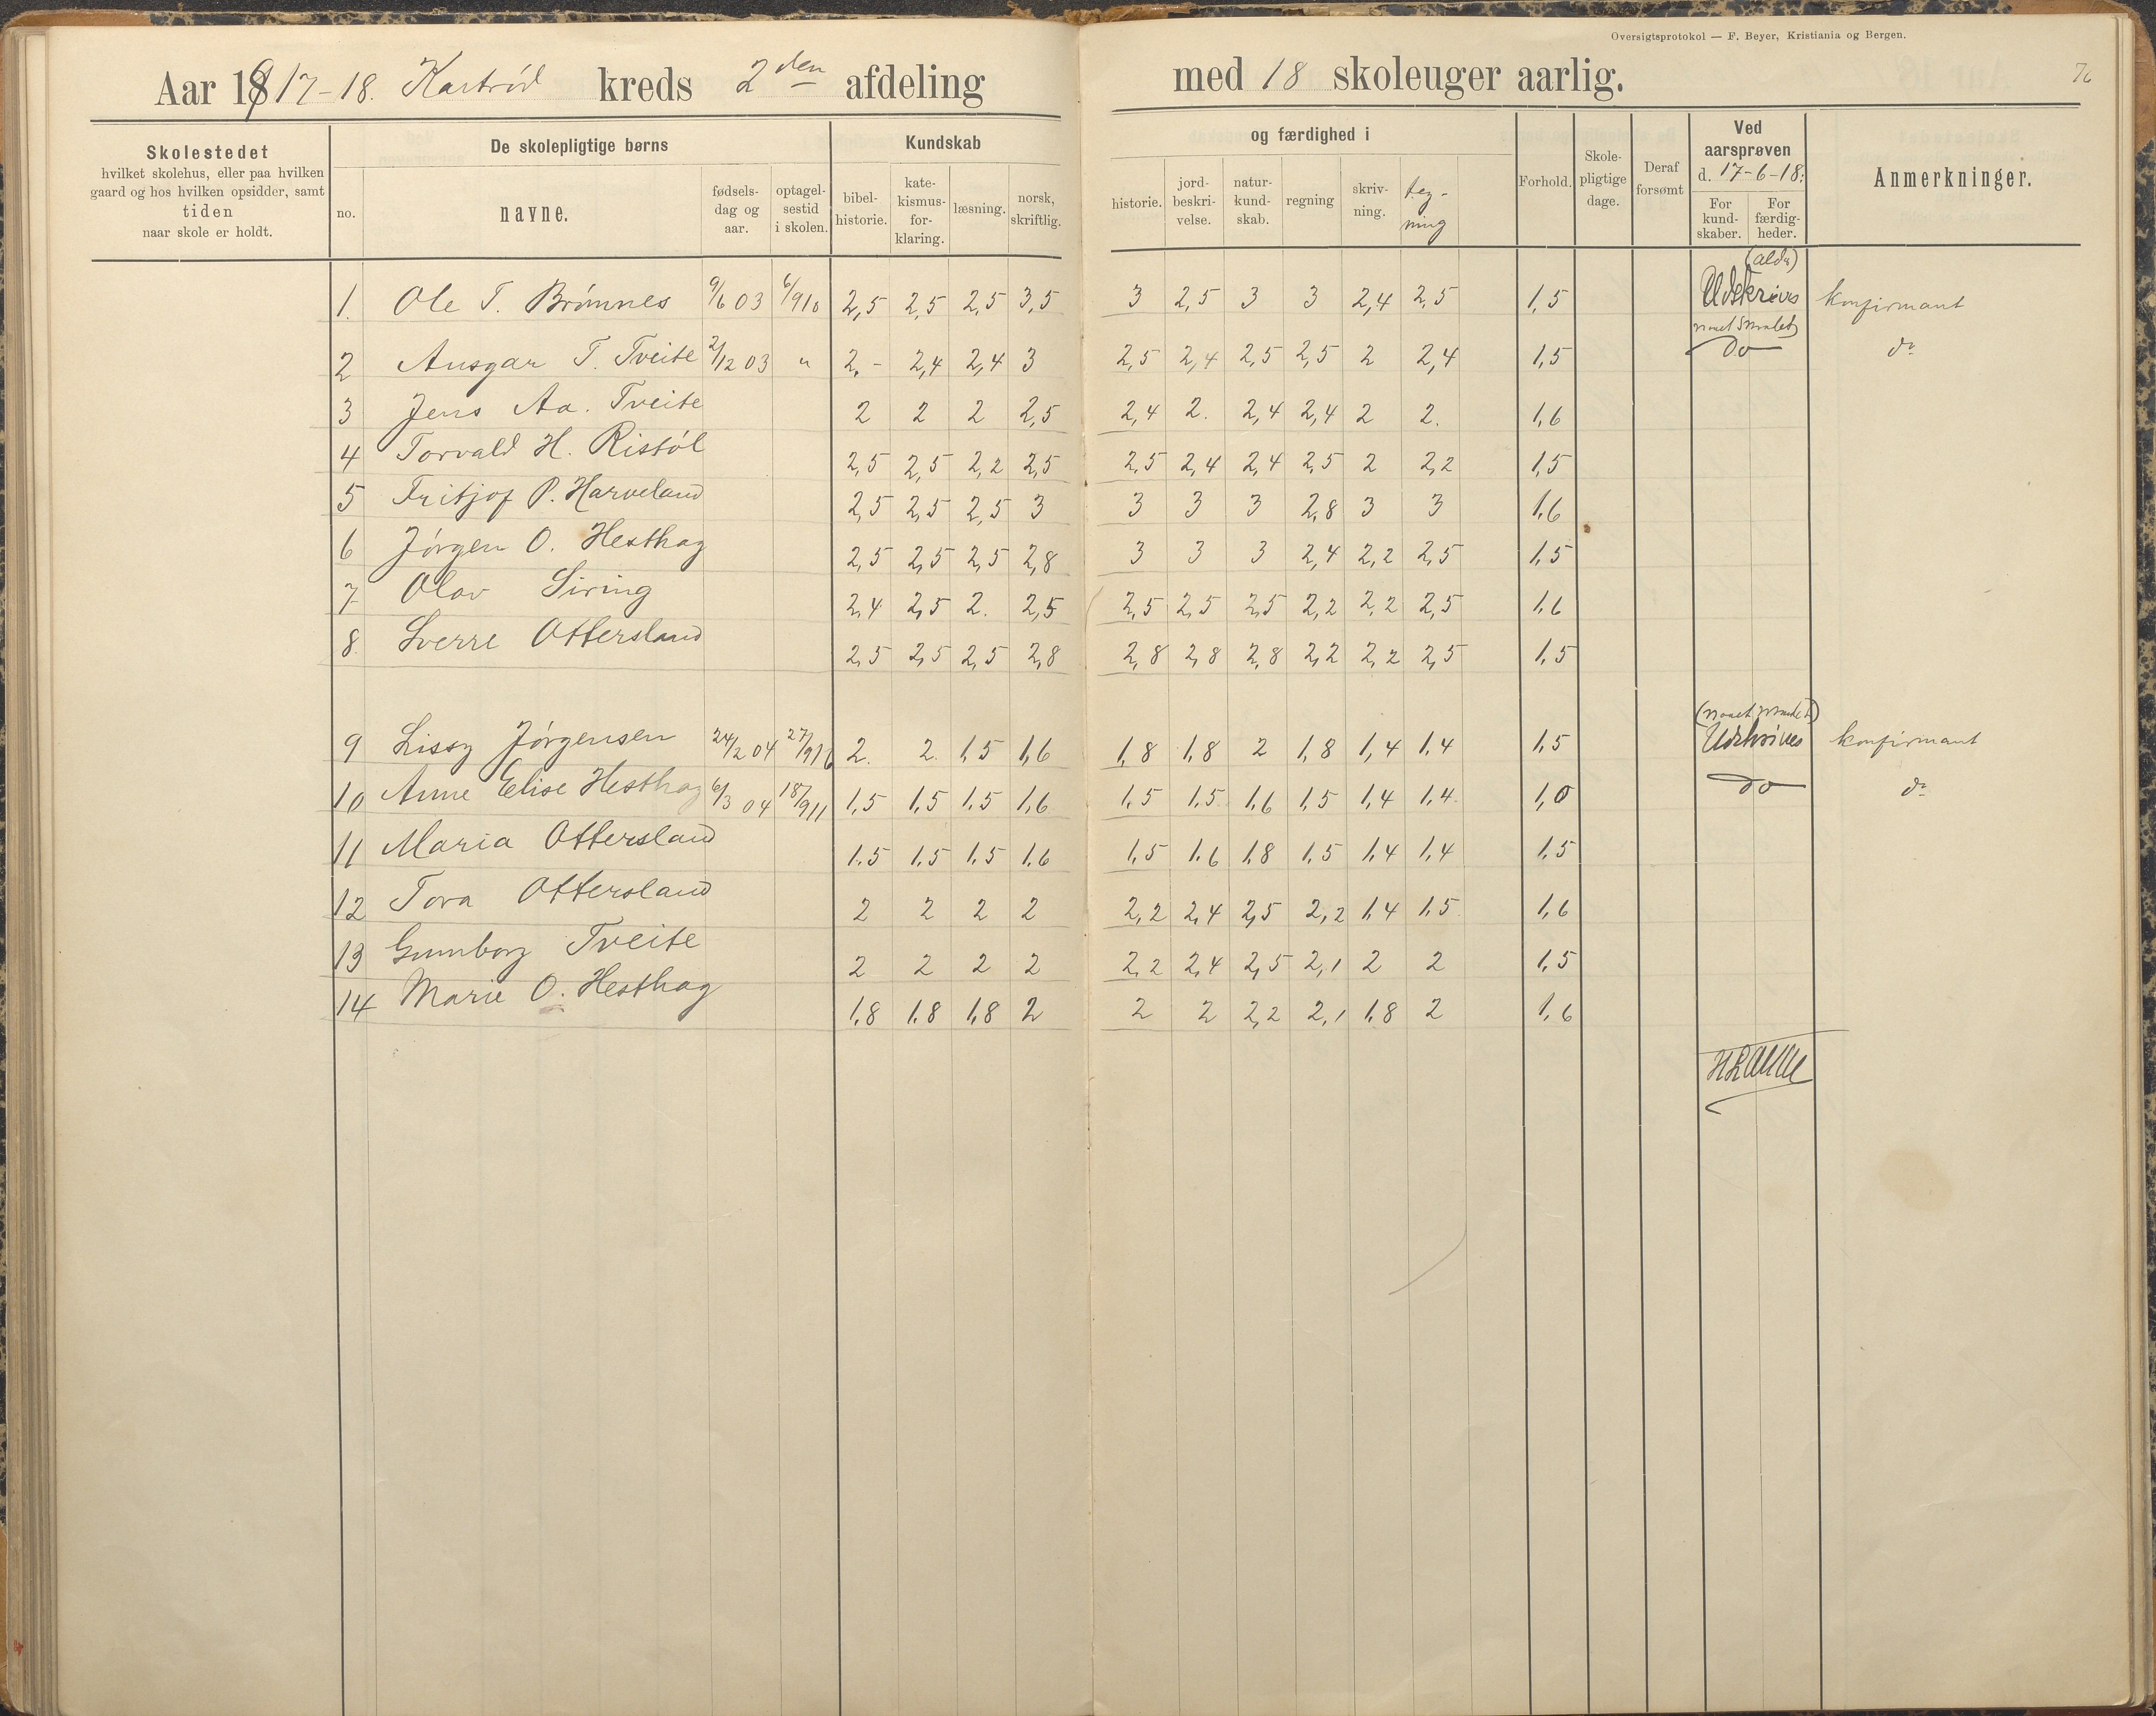 Oversigtsprotokol — F. Beyer, Kristiania og Bergen.
76
Aar 1917-18. Kartrød kreds 2den afdeling med 18 skoleuger aarlig.
Skolestedet
hvilket skolehus, eller paa hvilken
gaard og hos hvilken opsidder, samt
tiden
naar skole er holdt.
De skolepligtige børns
no.
navne.
fødsels-
dag og
aar.
optagel-
sestid
i skolen.
Kundskab
bibel-
historie.
kate-
kismus-
for-
klaring.
læsning.
norsk,
skriftlig.
og færdighed i
historie.
jord-
beskri-
velse.
natur-
kund-
skab.
regning
skriv-
ning.
teg-
ning
Forhold.
Skole-
pligtige
dage.
Deraf
forsømt
Ved
aarsprøven
d. 17-6-18.
For
kund-
skaber.
For
færdig-
heder.
Anmerkninger.
1. Ole T. Brømnes 9/6 03 6/9 10 2,5 2,5 2,5 3,5 3 2,5 3 3 2,4 2,5 1,5 Udskrives konfirmant
2 Ansgar T. Tveite 2/12 03 " 2,- 2,4 2,4 3 2,5 2,4 2,5 2,5 2 2,4 1,5 do do
3 Jens Aa. Tveite 2 2 2 2,5 2,4 2. 2,4 2,4 2 2. 1,6
4 Torvald H. Ristøl 2,5 2,5 2,2 2,5 2,5 2,4 2,4 2,5 2 2,2 1,5
5 Fritjof P. Harveland 2,5 2,5 2,5 3 3 3 3 2,8 3 3 1,6
6 Jørgen O. Hesthag 2,5 2,5 2,5 2,8 3 3 3 2,4 2,2 2,5 1,5
7. Olav Siring 2,4 2,5 2. 2,5 2,5 2,5 2,5 2,2 2,2 2,5 1,6
8. Sverre Ottersland 2,5 2,5 2,5 2,8 2,8 2,8 2,8 2,2 2,2 2,5 1,5
9 Lissy Jørgensen 24/2 04 27/9 16 2. 2. 1,5 1,6 1,8 1,8 2 1,8 1,4 1,4 1,5 Udskrives konfirmant
10 Anne Elise Hesthag 6/3 04 18/9 11 1,5 1,5 1,5 1,6 1,5 1,5 1,6 1,5 1,4 1,4 1,0 do do
11 Maria Ottersland 1,5 1,5 1,5 1,6 1,5 1,6 1,8 1,5 1,4 1,4 1,5
12 Tora Ottersland 2 2 2 2 2,2 2,4 2,5 2,2 1,4 1,5 1,6
13 Gunnborg Tveite 2 2 2 2 2,2 2,4 2,5 2,1 2 2 1,5
14 Marie O. Hesthag 1,8 1,8 1,8 2 2 2 2,2 2,1 1,8 2 1,6